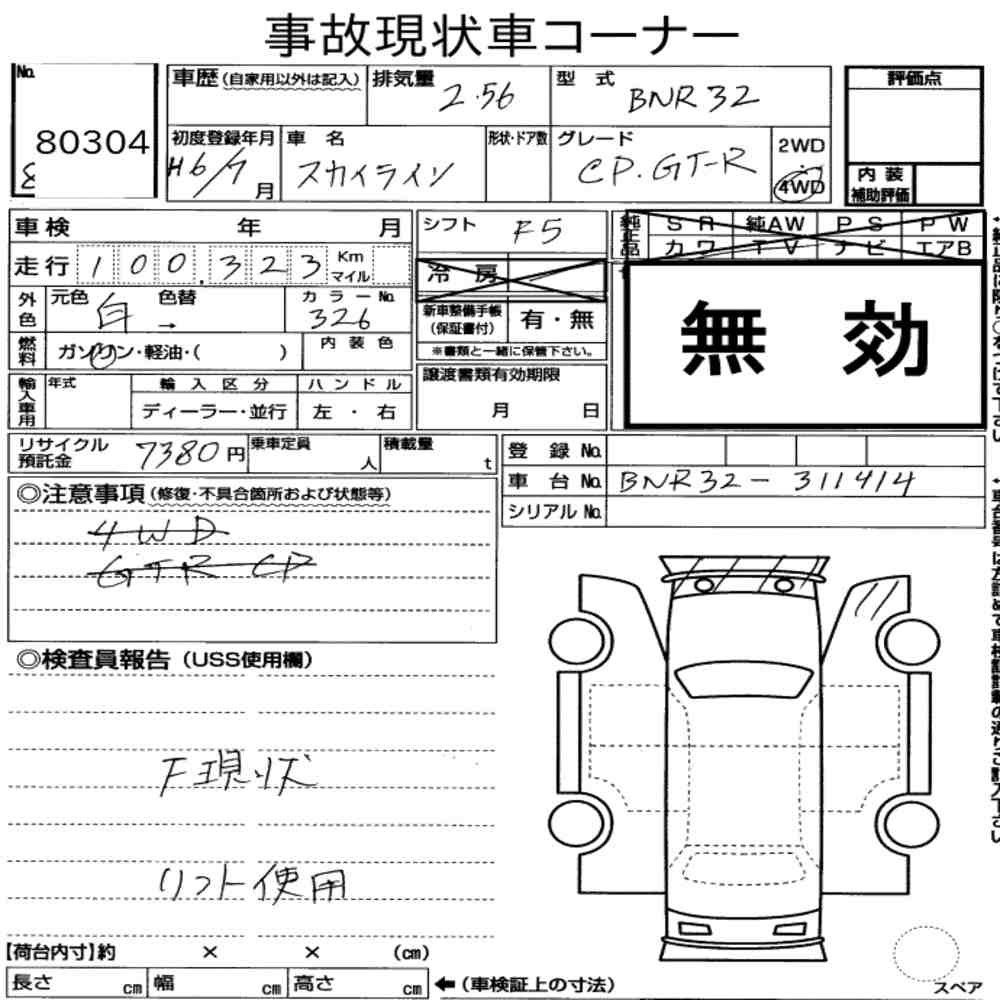 事故現状車コーナー
No. 80304
車歴 (自家用以外は記入) 排気量 2.56 型式 BNR32 評価点
初度登録年月 H6/7月 車名 スカイライン 形状・ドア数 グレード CP.GT-R 2WD 4WD
内装補助評価
車検 年 月 シフト F5 純正品 SR 純AW PS PW
カワ TV ナビ エアB
走行 100.323 Km マイル 冷房
外色 元色 白 色替 → カラーNo. 326 新車整備手帳 (保証書付) 有・無
燃料 ガソリン・軽油・( ) 内装色 ※書類と一緒に保管下さい。
無効
輸入車用 年式 輸入区分 ハンドル 譲渡書類有効期限
ディーラー・並行 左・右 月 日
リサイクル預託金 7380円 乗車定員 人 積載量 t 登録No.
車台No. BNR32-311414
シリアルNo.
◎注意事項 (修復・不具合箇所および状態等)
4WD
GTR CP
◎検査員報告 (USS使用欄)
F現状
リフト使用
【荷台内寸】約 × × (cm)
長さ cm 幅 cm 高さ cm ←(車検証上の寸法)
スペア